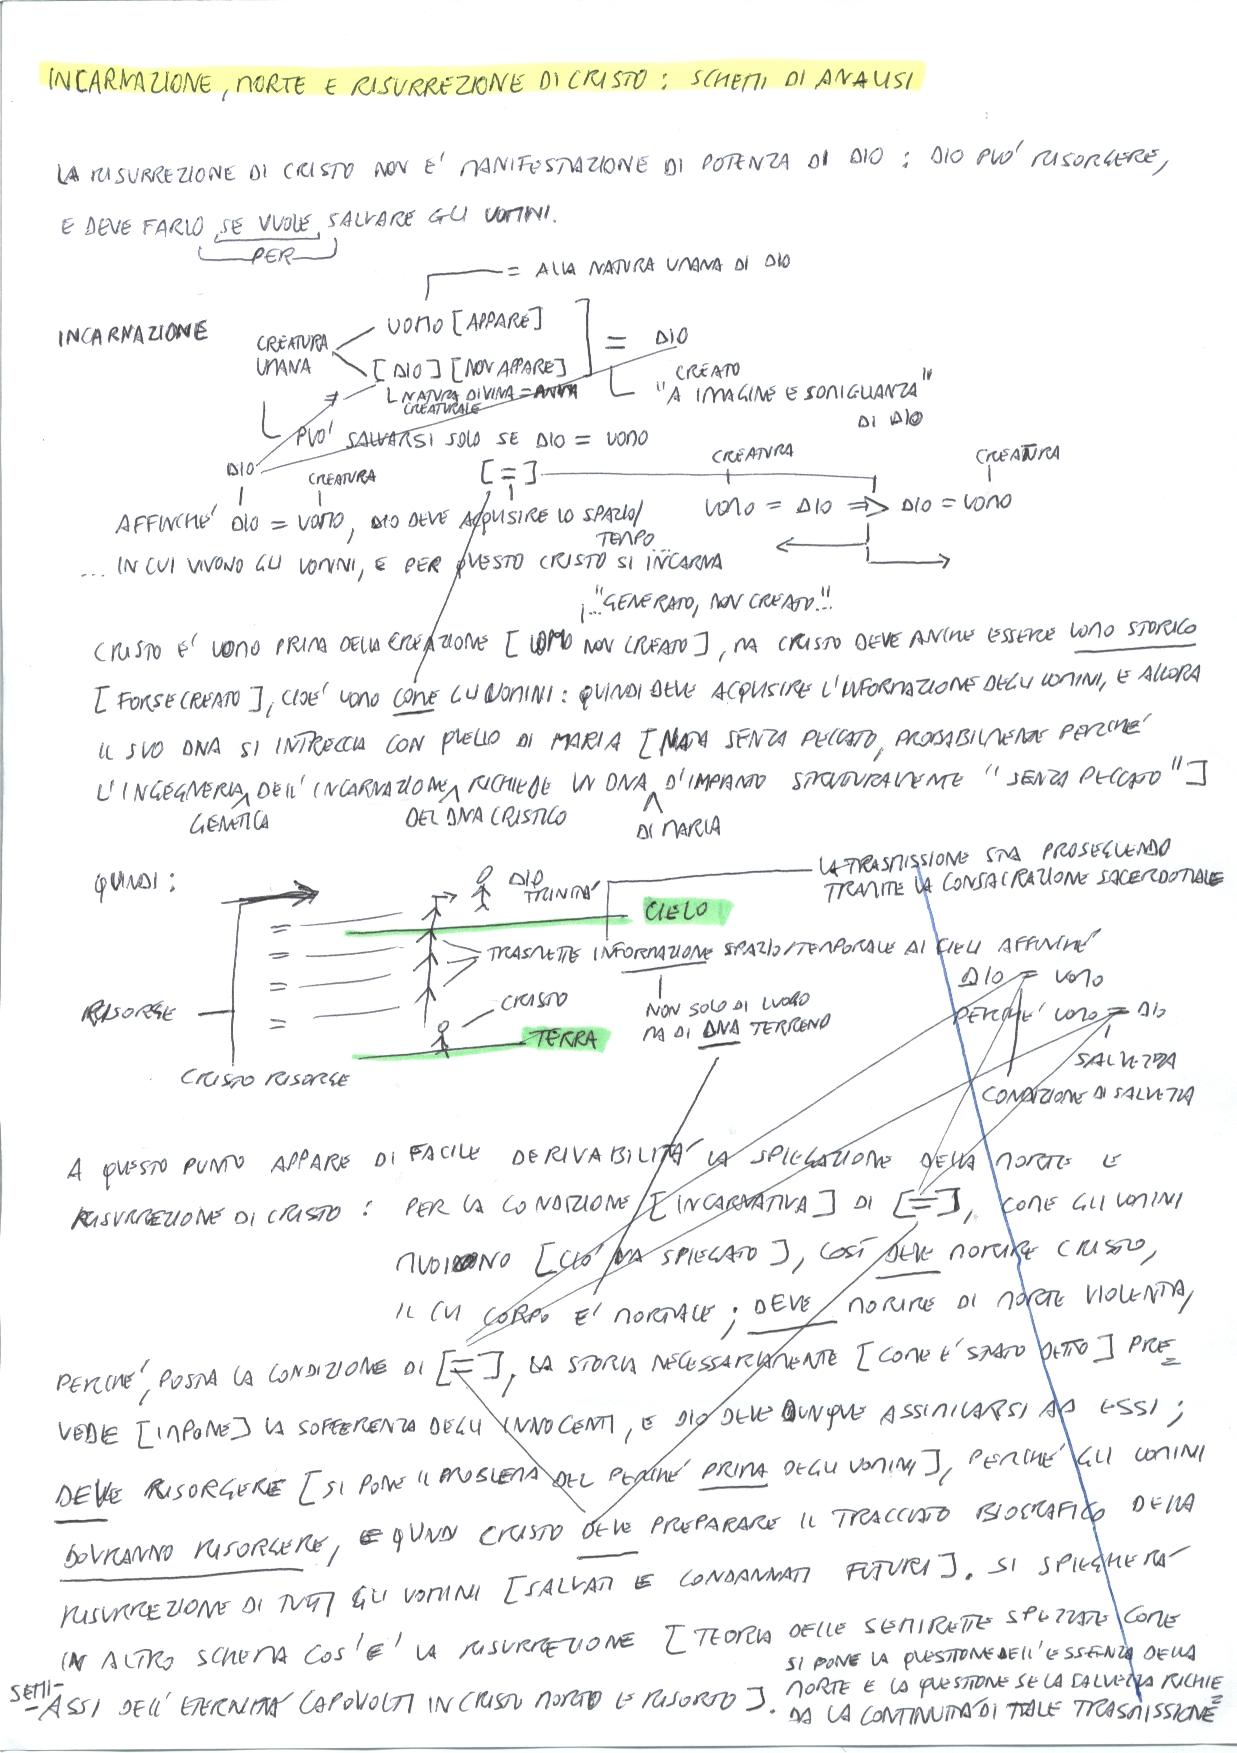 INCARNAZIONE, MORTE E RISURREZIONE DI CRISTO: SCHEMI DI ANALISI
LA RISURREZIONE DI CRISTO NON E' MANIFESTAZIONE DI POTENZA DI DIO: DIO PUO' RISORGERE,
E DEVE FARLO SE VUOLE SALVARE GLI UOMINI.
PER
= ALLA NATURA UMANA DI DIO
INCARNAZIONE
CREATURA UMANA
UOMO [APPARE]
[DIO] [NON APPARE]
NATURA DIVINA = ANIMA
CREATURALE
= DIO
CREATO
"A IMAGINE E SOMIGLIANZA"
DI DIO
PUO' SALVARSI SOLO SE DIO = UOMO
DIO
CREATURA
[=]
CREATURA
CREATURA
AFFINCHE' DIO = UOMO, DIO DEVE ACQUISIRE LO SPAZIO/
TEMPO...
UOMO = DIO => DIO = UOMO
... IN CUI VIVONO GLI UOMINI, E PER QUESTO CRISTO SI INCARNA
..."GENERATO, NON CREATO"...
CRISTO E' UOMO PRIMA DELLA CREAZIONE [UOMO NON CREATO], MA CRISTO DEVE ANCHE ESSERE UOMO STORICO
[FORSE CREATO], CIOE' UOMO COME GLI UOMINI: QUINDI DEVE ACQUISIRE L'INFORMAZIONE DEGLI UOMINI, E ALLORA
IL SUO DNA SI INTRECCIA CON QUELLO DI MARIA [NATA SENZA PECCATO, PROBABILMENTE PERCHE'
L'INGEGNERIA DELL'INCARNAZIONE RICHIEDE UN DNA D'IMPIANTO STRUTTURALMENTE "SENZA PECCATO"]
GENETICA
DEL DNA CRISTICO
DI MARIA
QUINDI:
DIO TRINITA'
LA TRASMISSIONE STA PROSEGUENDO
TRAMITE LA CONSACRAZIONE SACERDOTALE
CIELO
TRASMETTE INFORMAZIONE SPAZIO/TEMPORALE AI CIELI AFFINCHE'
DIO = UOMO
PERCHE' UOMO = DIO
SALVEZZA
CONDIZIONE DI SALVEZZA
CRISTO
NON SOLO DI LUOGO
MA DI DNA TERRENO
RISORGE
TERRA
CRISTO RISORGE
A QUESTO PUNTO APPARE DI FACILE DERIVABILITA' LA SPIEGAZIONE DELLA MORTE E
RISURREZIONE DI CRISTO: PER LA CONDIZIONE [INCARNATIVA] DI [=], COME GLI UOMINI
MUOIONO [CIO' VA SPIEGATO], COSÌ DEVE MORIRE CRISTO,
IL CUI CORPO E' MORTALE; DEVE MORIRE DI MORTE VIOLENTA,
PERCHE', POSTA LA CONDIZIONE DI [=], LA STORIA NECESSARIAMENTE [COME E' STATO DETTO] PRE=
VEDE [IMPONE] LA SOFFERENZA DEGLI INNOCENTI, E DIO DEVE DUNQUE ASSIMILARSI AD ESSI;
DEVE RISORGERE [SI PONE IL PROBLEMA DEL PERCHE' PRIMA DEGLI UOMINI], PERCHE' GLI UOMINI
DOVRANNO RISORGERE, E QUINDI CRISTO DEVE PREPARARE IL TRACCIATO BIOGRAFICO DELLA
RISURREZIONE DI TUTTI GLI UOMINI [SALVATI E CONDANNATI FUTURI]. SI SPIEGHERA'
IN ALTRO SCHEMA COS'E' LA RISURREZIONE [TEORIA DELLE SEMIRETTE SPEZZATE COME
SEMI-ASSI DELL'ETERNITA' CAPOVOLTI IN CRISTO MORTO E RISORTO].
SI PONE LA QUESTIONE DELL'ESSENZA DELLA
MORTE E LA QUESTIONE SE LA SALVEZZA RICHIE=
DA LA CONTINUITA' DI TALE TRASMISSIONE